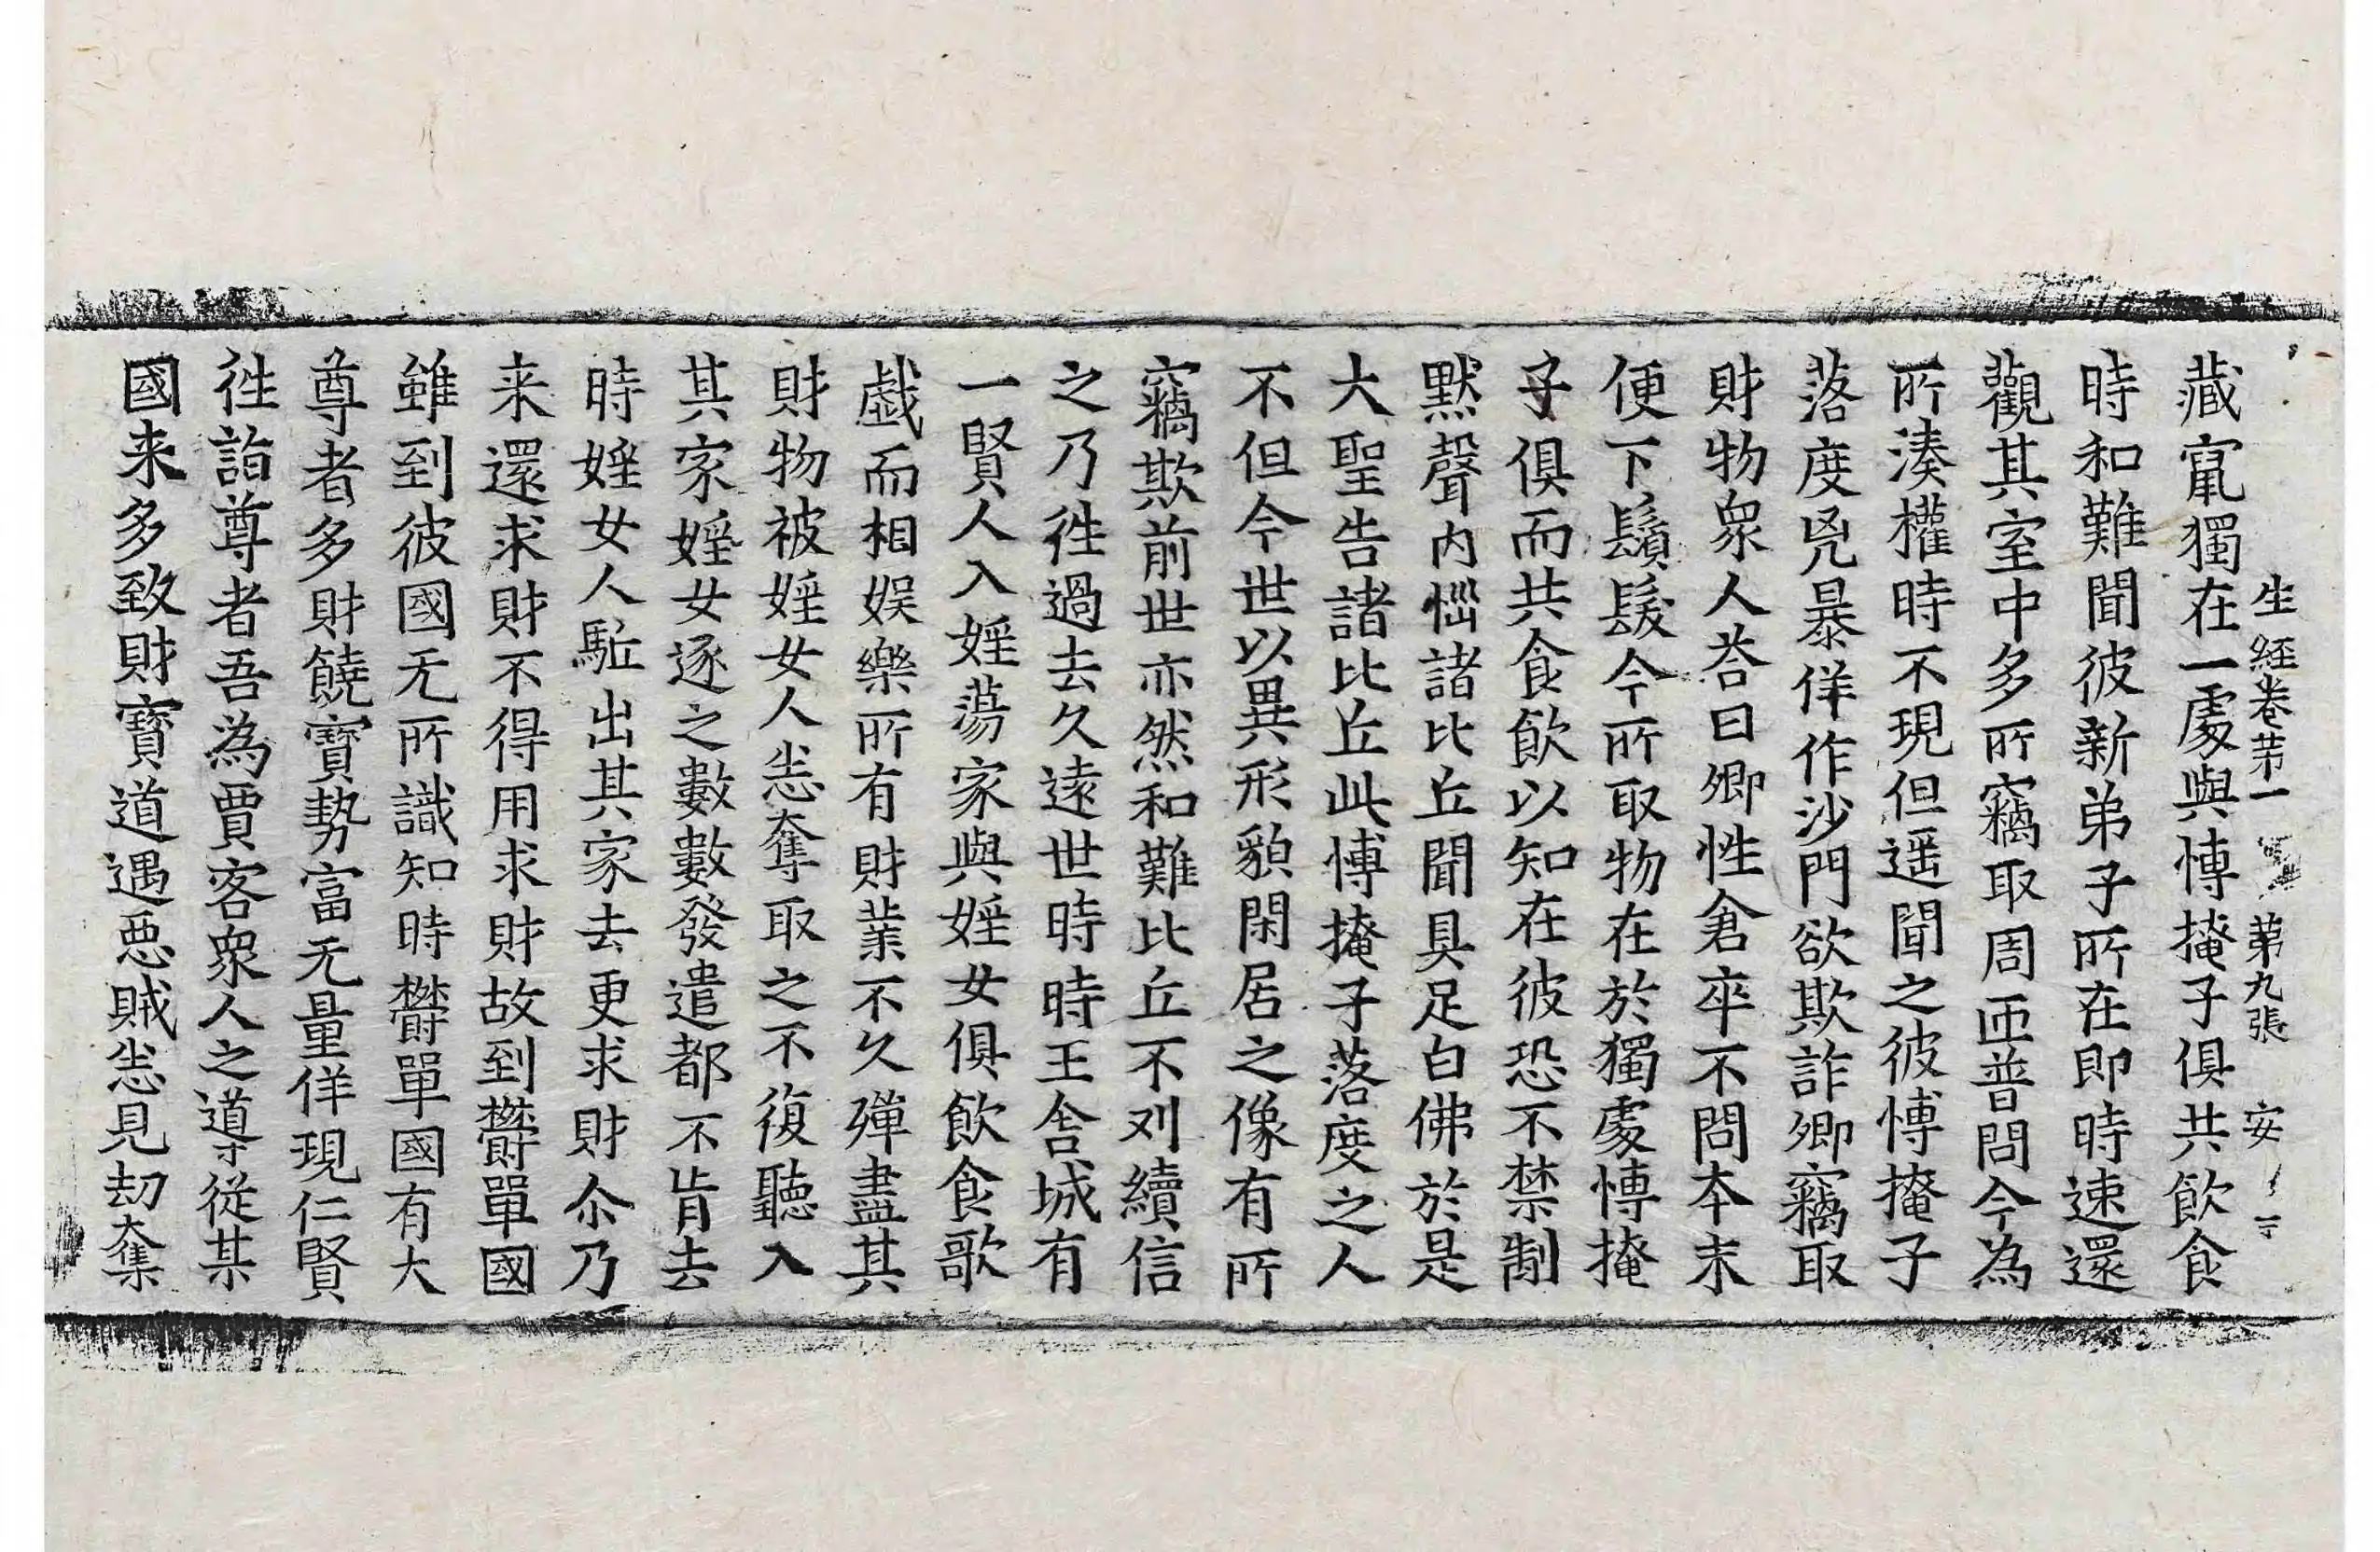 生経卷第一　第九張　安
藏竄獨在一處與愽掩子俱共飲食
時和難聞彼新弟子所在即時速還
觀其室中多所竊取周匝普問今為
所湊權時不現但遥聞之彼愽掩子
落度兇暴佯作沙門欲欺詐卿竊取
財物衆人荅曰卿性倉卒不問本末
便下鬚髮今所取物在於獨處愽掩
子俱而共食飲以知在彼恐不禁制
默聲內惱諸比丘聞具足白佛於是
大聖告諸比丘此愽掩子落度之人
不但今世以異形貌閑居之像有所
竊欺前世亦然和難比丘不刈續信
之乃徃過去久遠世時時王舍城有
一賢人入婬蕩家與婬女俱飲食歌
戱而相娱樂所有財業不久殫盡其
財物被婬女人悉奪取之不復聽入
其家婬女逐之數數發遣都不肯去
時婬女人駈出其家去更求財尒乃
来還求財不得用求財故到欝單國
雖到彼國无所識知時欝單國有大
尊者多財饒寶勢富无量佯現仁賢
徃詣尊者吾為賈客衆人之導從某
國来多致財寶道遇惡賊悉見劫奪